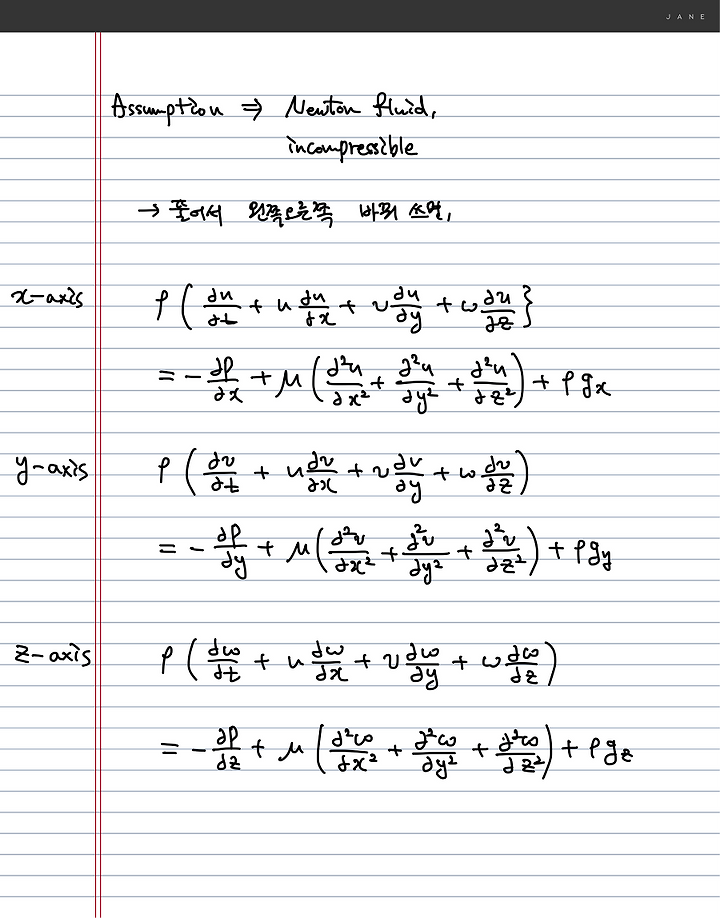 JANE
Assumption ⇒ Newton fluid,
incompressible
→ 풀어서 왼쪽오른쪽 바꿔 쓰면,
x-axis ρ ( ∂u/∂t + u ∂u/∂x + v ∂u/∂y + w ∂u/∂z }
= - ∂P/∂x + μ ( ∂²u/∂x² + ∂²u/∂y² + ∂²u/∂z² ) + ρgx
y-axis ρ ( ∂v/∂t + u ∂v/∂x + v ∂v/∂y + w ∂v/∂z )
= - ∂P/∂y + μ ( ∂²v/∂x² + ∂²v/∂y² + ∂²v/∂z² ) + ρgy
z-axis ρ ( ∂w/∂t + u ∂w/∂x + v ∂w/∂y + w ∂w/∂z )
= - ∂P/∂z + μ ( ∂²w/∂x² + ∂²w/∂y² + ∂²w/∂z² ) + ρgz